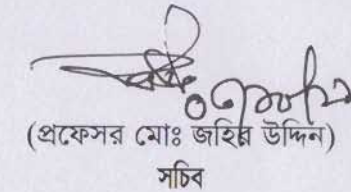 (প্রফেসর মোঃ জহির উদ্দিন)
সচিব